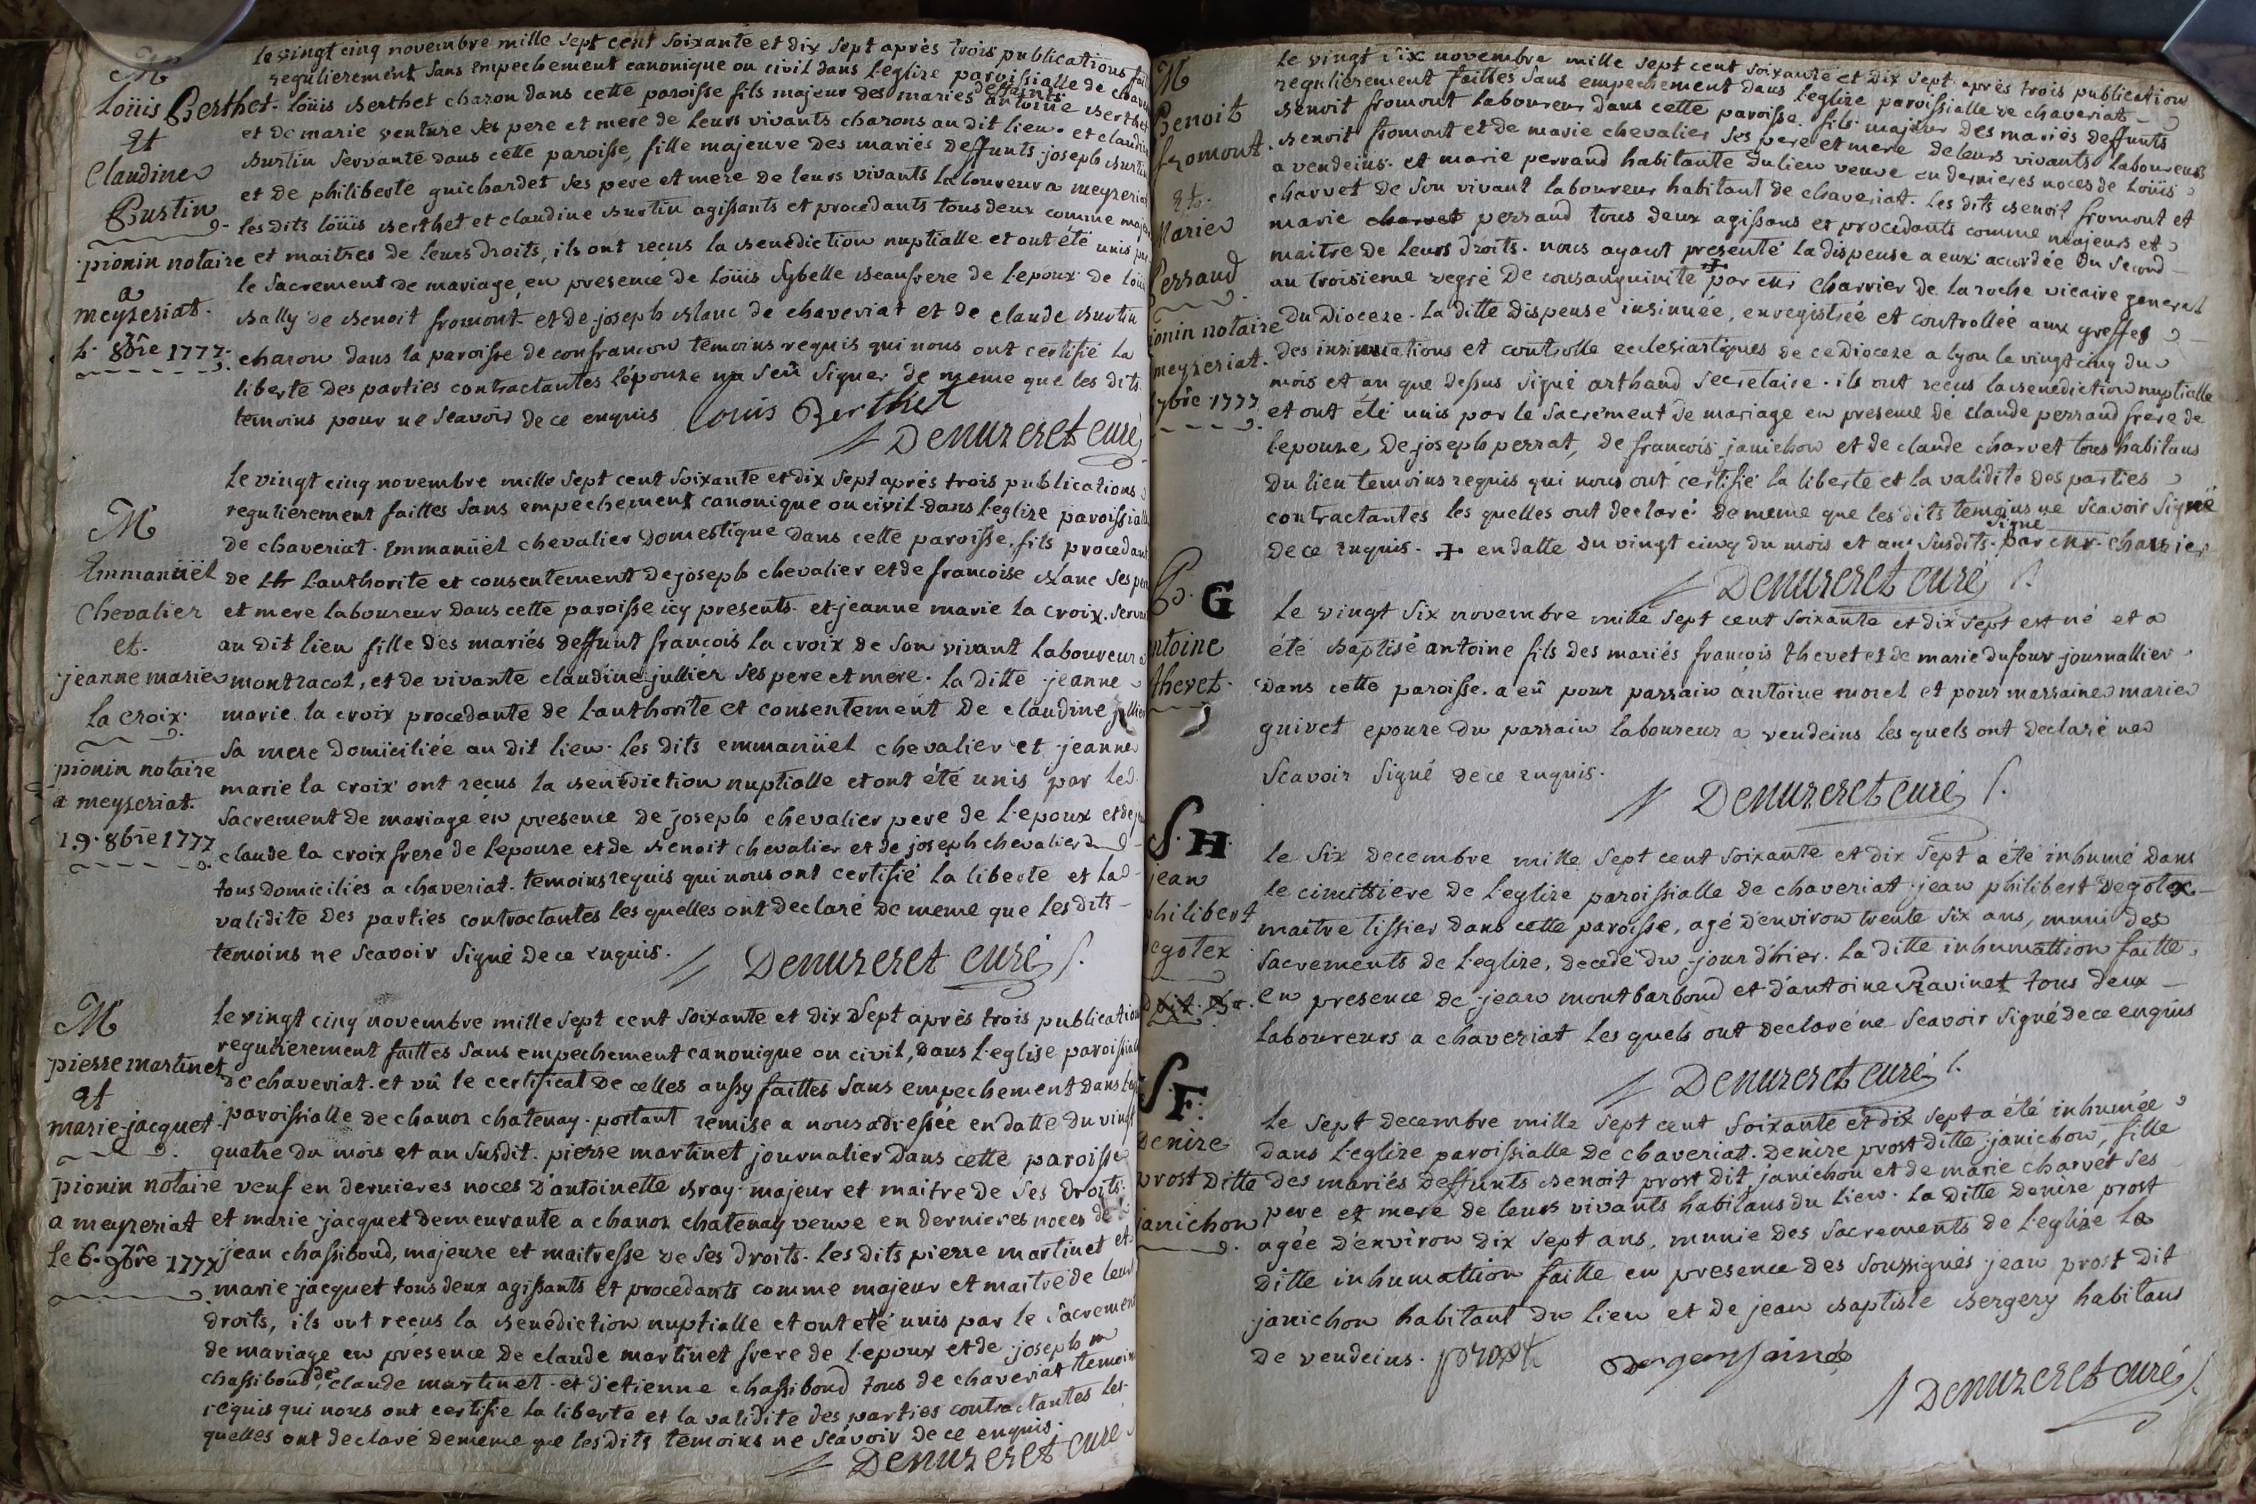 M
Loüis Berthet.
Et
Claudine
Burtin
pionin notaire
a
meyzeriat.
8bre 1777.
le vingt cinq novembre mille sept cent soixante et dix sept après trois publications
regulierement sans empechement canonique ou civil dans l'eglize paroissialle de
loüis Berthet charon dans cette paroisse fils majeur des mariés deffunts antoine Berthet
et de marie venture ses pere et mere de leurs vivants charons au dit lieu. et claudine
Burtin servante dans cette paroisse, fille majeure des mariés deffunts joseph Burtin
et de philiberte guichardet ses pere et mere de leurs vivants laboureur a meyzeriat
les dits loüis Berthet et claudine Burtin agissants et procedants tous deux comme
et maitres de leurs droits, ils ont recus la Benediction nuptialle et ont été unis
le sacrement de mariage, en presence de Loüis Sybelle Beaufrere de l'epoux de
Bally de Benoit fromont et de joseph Blanc de chaveriat et de claude Burtin
charon dans la paroisse de confrancon temoins requis qui nous ont certifié la
liberté des parties contractantes l'épouze na seû signer de meme que les dits
temoins pour ne scavoir de ce enquis Louis Berthet
Denuzeret curé
M
Emmanüel
Chevalier
et.
jeanne marie
la croix.
pionin notaire
a meyzeriat.
19. 8bre 1777
le vingt cinq novembre mille sept cent soixante et dix sept aprés trois publications
regulierement faittes sans empechement canonique ou civil dans l'eglize paroissialle
de chaveriat. Emmanüel chevalier domestique dans cette paroisse, fils procedant
de l'authorité et consentement de joseph chevalier et de francoise Blanc ses
et mere laboureur dans cette paroisse icy presents. et jeanne marie la croix
au dit lieu fille des mariés deffunt francois la croix de son vivant laboureur a
montracol, et de vivante claudine jullier ses pere et mere. la ditte jeanne
marie la croix procedante de l'authorité et consentement de claudine jullier
sa mere domiciliée au dit lieu. les dits emmanüel chevalier et jeanne
marie la croix ont recus la Benédiction nuptialle et ont été unis par le
sacrement de mariage en presence de joseph chevalier pere de l'epoux et de
claude la croix frere de l'epouze et de Benoit chevalier et de joseph chevalier
tous domiciliés a chaveriat. temoins requis qui nous ont certifié la liberté et la
validité des parties contractantes les quelles ont declaré de meme que les dits
temoins ne scavoir signé de ce enquis.
Denuzeret curé
M
pierre martinet
et
marie jacquet
pionin notaire
a meyzeriat
le 6. 9bre 1777
le vingt cinq novembre mille sept cent soixante et dix sept aprés trois publications
regulierement faittes sans empechement canonique ou civil, dans l'eglise paroissialle
de chaveriat. et vû le certificat de celles aussy faittes sans empechement dans
paroissialle de chanoz chatenay. portant remise a nous adressée en datte du vingt
quatre du mois et an susdit. pierre martinet journalier dans cette paroisse
veuf en dernieres noces d'antoinette Bray. majeur et maitre de ses droits.
et marie jacquet demeurante a chanoz chatenay veuve en dernieres noces de
jean chassiboud, majeure et maitresse de ses droits. les dits pierre martinet et
marie jacquet tous deux agissants et procedants comme majeur et maitre de leurs
droits, ils ont recus la Benédiction nuptialle et ont été unis par le sacrement
de mariage en présence de claude martinet frere de l'epoux et de joseph
chassiboud, de claude martinet et d'etienne chassiboud tous de chaveriat temoins
requis qui nous ont certifié la liberté et la validité des parties contractantes les
quelles ont declaré de meme que les dits temoins ne scavoir de ce enquis.
Denuzeret curé
M
Benoit
fromont.
et.
Marie
Perraud
pionin notaire
meyzeriat.
1777
le vingt six novembre mille sept cent soixante et dix sept. aprés trois publication
regulierement faittes sans empechement dans l'eglize paroissialle de chaveriat
Benoit fromont laboureur dans cette paroisse. fils majeur des mariés deffunts
Benoit fromont et de marie chevalier ses pere et mere de leurs vivants laboureurs
a vendeins. et marie perraud habitante du lieu veuve en dernieres noces de Loüis
charvet de son vivant laboureur habitant de chaveriat. les dits Benoit fromont et
marie charvet perraud tous deux agissans et procedants comme majeurs et
maitre de leurs droits. nous ayant presenté la dispense a eux acordée du second
au troisieme degré de consanguinité + par mr charrier de la roche vicaire general
du Dioceze. la ditte dispense insinuée, enregistrée et controllée aux greffes
des insinuations et controlle ecclesiastiques de ce dioceze a lyon le vingt cinq du
mois et an que dessus signé arthaud secretaire. ils ont recus la Benédiction nuptialle
et ont été unis par le sacrement de mariage en presence de claude perraud frere de
l'epouze, de joseph perrat, de francois janichon et de claude charvet tous habitans
du lieu temoins requis qui nous ont certifié la liberté et la validité des parties
contractantes les quelles ont declaré de meme que les dits temoins ne scavoir signé
de ce enquis. + en datte du vingt cinq du mois et an susdits. signé par mr. charrier
Denuzeret curé
B. G
antoine
thevet.
le vingt six novembre mille sept cent soixante et dix sept est né et a
été Baptisé antoine fils des mariés francois thevet et de marie dufour journallier
dans cette paroisse. a eû pour parrain antoine morel et pour marraine marie
guivet epouze du parrain laboureur a vendeins les quels ont declaré ne
scavoir signé de ce enquis.
Denuzeret curé
S. H
jean
philibert
degotex
le six decembre mille sept cent soixante et dix sept a été inhumé dans
le cimittiere de l'eglize paroissialle de chaveriat jean philibert degotex
maitre tissier dans cette paroisse, agé d'environ trente six ans, muni des
sacrements de l'eglize, decedé du jour d'hier. la ditte inhumattion faitte
en presence de jean montbarbond et d'antoine Ravinet tous deux
laboureurs a chaveriat les quels ont declaré ne scavoir signé de ce enquis
Denuzeret curé
S. F.
Denize
prost ditte
janichon
le sept decembre mille sept cent soixante et dix sept a été inhumée
dans l'eglize paroissialle de chaveriat. denize prost ditte janichon, fille
des mariés deffunts Benoit prost dit janichon et de marie charvet ses
pere et mere de leurs vivants habitans du lieu. la ditte denize prost
agée d'environ dix sept ans, munie des sacrements de l'eglize la
ditte inhumattion faitte en presence des soussignés jean prost dit
janichon habitant du lieu et de jean Baptiste Bergery habitans
de vendeins. prost
Denuzeret curé